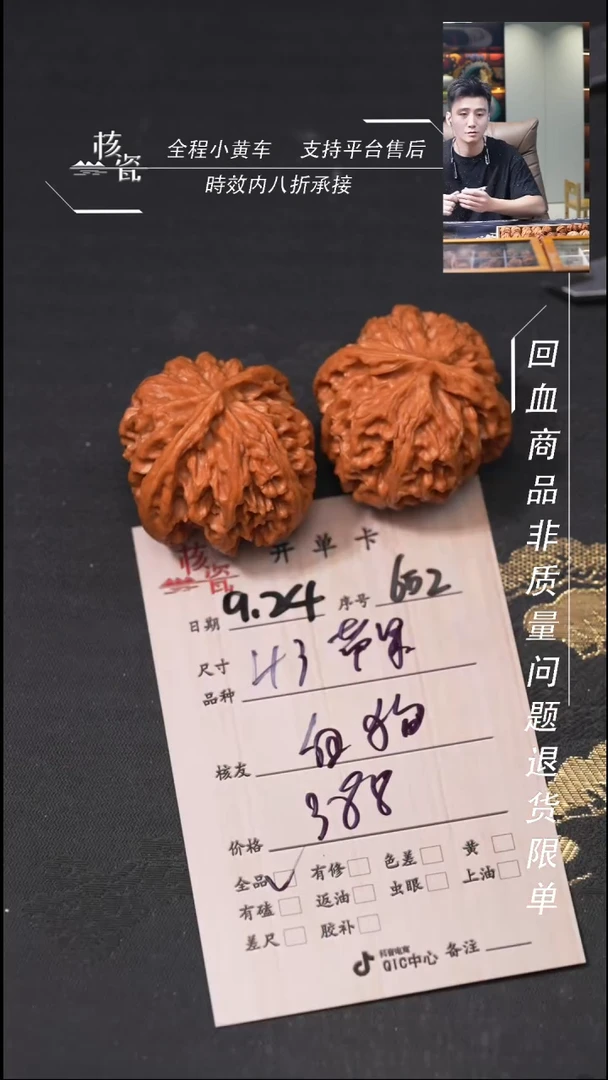 核瓷
全程小黄车 支持平台售后
時效内八折承接
回血商品非质量问题退货限单
核瓷
开单卡
日期 9.24 序号 652
尺寸
品种 43 苹果
核友
价格 388
全品 有修 色差 黄
有磕 返油 虫眼 上油
差尺 胶补
抖音电商
QIC中心 备注